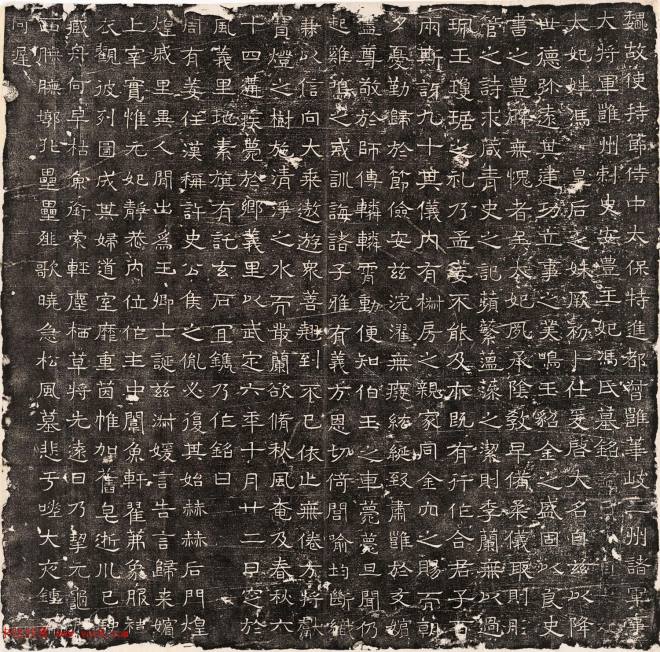 魏故使持節侍中太保特進都督雍華岐三州諸軍事
大將軍雍州刺史安豐王妃馮氏墓銘
太妃姓馮 皇后之妹厥初卜仕爰啓大名自茲以降
世德弥遠其建功立事之美鳴玉貂金之盛固以良史
書之豊碑無愧者矣太妃夙承陰教早備柔儀取則彤
管之詩求箴青史之記蘋蘩薀藻之潔則季蘭無以過
珮玉瓊琚之礼乃孟姜不能及亦既有行作合君子百
兩斯訝九十其儀內有椒房之親家同金穴之賜而朝
夕憂勤歸於節儉安茲浣濯無癈絺綖致肅雍於
盡尊敬於師傅轔轔霄動便知伯玉之車薨薨旦聞仍
起雞鳴之戒訓誨諸子雅有義方恩切倚閭喻均斷織
兼以信向大乘遨遊眾善翹到不已依止無倦方將獻
寶燈之樹施清淨之水而散蘭欲脩秋風奄及春秋六
十四遘疾薨於鄉義里以武定六年十月廿二日窆於
風義里地素旐有託玄石宜鐫乃作銘曰
周有姜任漢稱許史公侯之胤必復其始赫赫后門煌
煌戚里異人間出為王卿士誕茲淑媛言告言歸來嬪
上宰寔惟元妃靜恭內位作主中闈魚軒翟茀象服褘
衣觀彼列圖成其婦道室靡重茵帷加舊皂逝川已
臧舟何早枯魚銜索輕塵栖草將先遠日乃挈元龜
朦朦墩兆壘壘薤歌曉急松風暮悲于嗟大夜
何遲